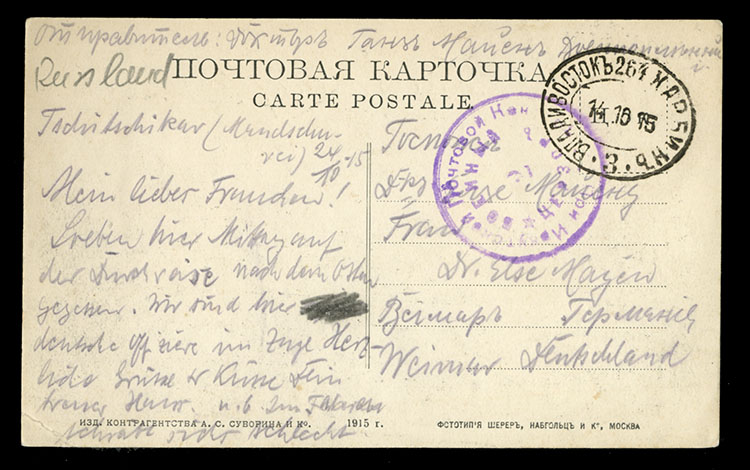 отправитель: Докторъ Гансъ Майенъ Военноплѣнный
Russland
ПОЧТОВАЯ КАРТОЧКА
CARTE POSTALE.
ВЛАДИВОСТОКЪ 264 ХАРБИНЪ
14.10 15
З
Tschitschikar (Mandschu-
rei) 24/10 -15
Mein lieber Frauchen!
Soeben hier Mittag auf
der Durchreise nach dem Osten
gegessen. Wir sind hier
deutsche Offiziere im Zuge Herz-
liche Grüsse & Küsse Dein
treuer Hans. n.b. Im Fahren
schreibt sichs schlecht.
Госпожа
Д-ръ Else
Frau
Dr. Else Mayen
Веймаръ Германия
Weimar Deutschland
ИЗД. КОНТРАГЕНТСТВА А. С. СУВОРИНА И Кº. 1915 г.
ФОТОТИПІЯ ШЕРЕРЪ, НАБГОЛЬЦЪ И Кº, МОСКВА